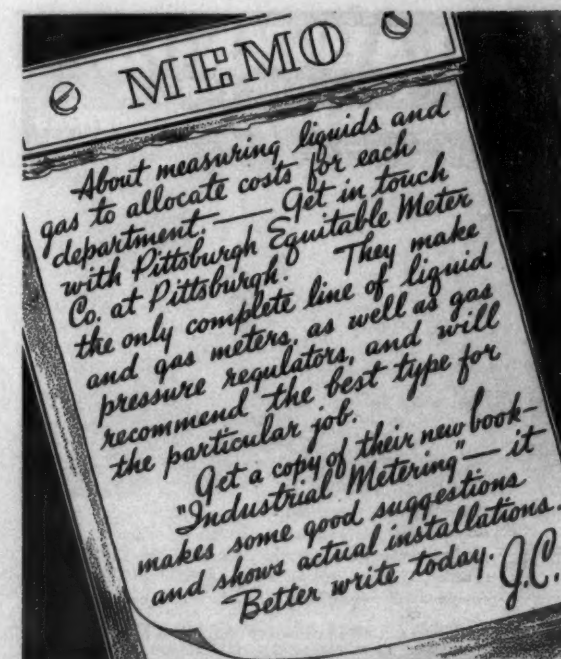 MEMO
About measuring liquids and
gas to allocate costs for each
department. — Get in touch
with Pittsburgh Equitable Meter
Co. at Pittsburgh. They make
the only complete line of liquid
and gas meters, as well as gas
pressure regulators, and will
recommend the best type for
the particular job.
Get a copy of their new book—
"Industrial Metering"— it
makes some good suggestions
and shows actual installations.
Better write today. J.C.